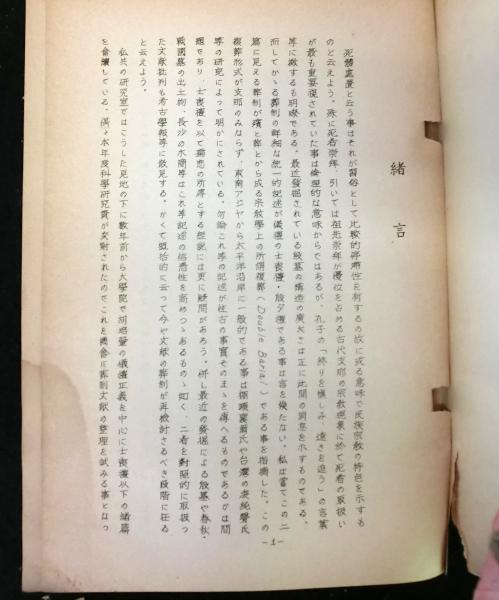 緒言
死體處置と云う事はそれが習俗として比較的停滯性を有するの故に或る意味で民族宗教の特色を示すも
のと云えよう。殊に死者崇拜、引いては祖先崇拜が優位を占める古代支那の宗教現象に於て死者の取扱い
が最も重要視されていた事は倫理的な意味からではあるが、孔子の「終りを愼しみ、遠きを追う」の言葉
等に徵するも明瞭である。最近發掘されている殷墓の構造の廣大さは正に此間の消息を示すものである。
而してかゝる葬制の詳細な統一的記述が儀禮の士喪禮・既夕禮である事は言を俟たない。私は嘗てこの二
篇に見える葬制が殯と葬とから成る宗敎學上の所謂複葬(Double Burial)である事を指摘した。この
複葬形式が支那のみならず、東南アジヤから太平洋沿岸に一般的である事は 氏や台灣の凌純聲氏
等の研究によって明かにされている。勿論これ等の記述が往古の事實そのまゝを傳へるものであるかは問
題であり、士喪禮を以て の所傳とする經說には更に疑問があろう。併し最近の發掘による殷墓や春秋・
戰國墓の出土物、長沙の木簡等はこれ等記述の信憑性を高めつゝあるものゝ如く、二者を對照的に取扱っ
た文獻批判も考古學報等に散見する。かくて概括的に云って今や文獻の葬制が再檢討さるべき段階に在る
と云えよう。
私共の研究室ではこうした見地の下に數年前から大學院で胡培翬の儀禮正義を中心に士喪禮以下の諸篇
を會讀している。偶々本年度科學研究費が交附されたのでこれを機會に葬制文獻の整理を試みる事となっ
-1-